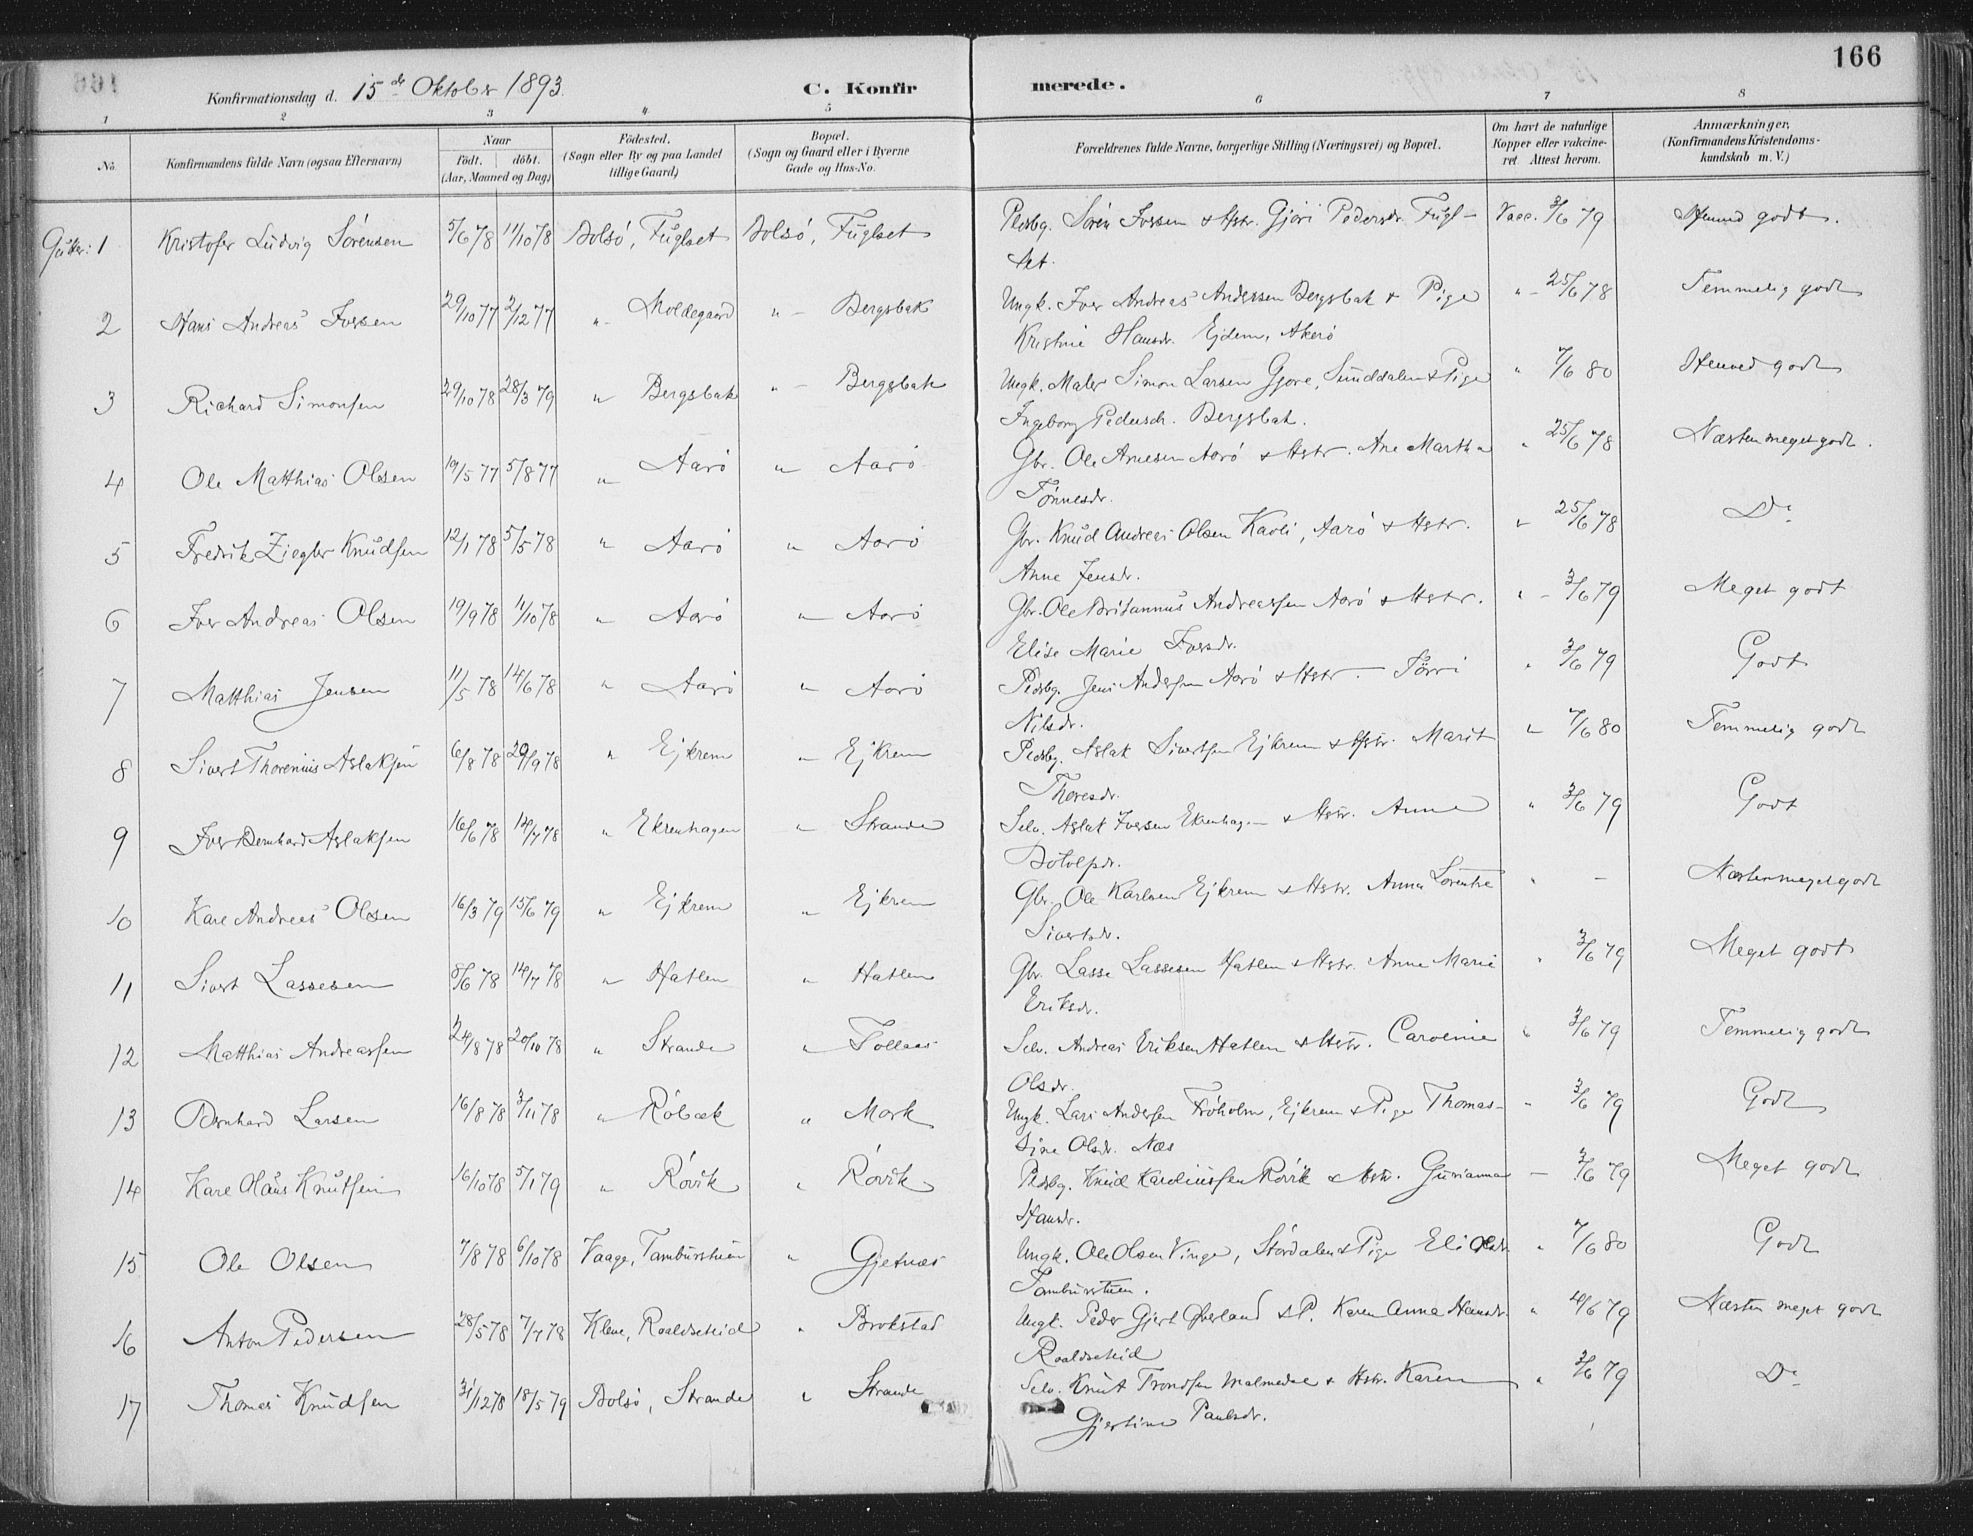 166
Konfirmationsdag d. 15de Oktober 1893.
C. Konfirmerede.
1 2 3 4 5 6 7 8
No. Konfirmandens fulde Navn (ogsaa Efternavn) Naar født. døbt. (Aar, Maaned og Dag) Fødested. (Sogn eller By og paa Landet tillige Gaard) Bopæl. (Sogn og Gaard eller i Byerne Gade og Hus-No. Forældrenes fulde Navne, borgerlige Stilling (Næringsvei) og Bopæl. Om havt de naturlige Kopper eller vakcineret. Attest herom. Anmærkninger, (Konfirmandens Kristendomskundskab m. V.)
Gutter: 1 Kristofer Ludvig Sörensen 5/6 78 11/10 78 Bolsö, Fuglset Bolsö, Fuglset Pladsbg. Sören Iversen & Hstr. Gjöri Pedersdr. Fuglset. Vacc. 3/6 79 godt.
2 Hans Andreas Iversen 29/10 77 2/12 77 " Moldegaard " Bergsbak Ungk. Iver Andreas Andersen Bergsbak & Pige Kristine Hansdr. Ejdem, Akerö " 25/6 78 Temmelig godt
3 Richard Simonsen 29/10 78 28/3 79 " Bergsbak " Bergsbak Ungk. Maler Simon Larsen Gjöre, Sunddalen & Pige Ingeborg Pedersdr. Bergsbak. " 7/6 80 godt
4 Ole Matthias Olsen 19/5 77 5/8 77 " Aarö " Aarö Gbr. Ole Arnesen Aarö & Hstr. Ane Martha Tönnesdr. " 25/6 78 Næsten meget godt.
5 Fredrik Ziegler Knudsen 12/1 78 5/5 78 " Aarö " Aarö Gbr. Knud Andreas Olsen Kavli, Aarö & Hstr. Anne Jensdr. " 25/6 78 Do
6 Iver Andreas Olsen 19/9 78 11/10 78 " Aarö " Aarö Gbr. Ole Britannus Andreassen Aarö & Hstr. Elise Marie Iversdr. " 3/6 79 Meget godt
7 Matthias Jensen 11/5 78 14/6 78 " Aarö " Aarö Pladsbg. Jens Andersen Aarö & Hstr. Törri Nilsdr. " 3/6 79 Godt
8 Sivert Thorenius Aslaksen 6/8 78 29/9 78 " Ejkrem " Ejkrem Pladsbg. Aslak Sivertsen Ejkrem & Hstr. Marit Thoresdr. " 7/6 80 Temmelig godt
9 Iver Bernhard Aslaksen 16/6 78 14/7 78 " Ekrenhagen " Strande Selv. Aslak Iversen Ekrenhagen & Hstr. Anne " 3/6 79 Godt
10 Kare Andreas Olsen 16/3 79 15/6 79 " Ejkrem " Ejkrem Gbr. Ole Karlsen Ejkrem & Hstr. Anne Lorentse Sivertsdr. " - Næsten meget godt
11 Sivert Lassesen 5/6 78 14/7 78 " Hatlen " Hatlen Gbr. Lasse Lassesen Hatlen & Hstr. Anne Marie Eriksdr. " 3/6 79 Meget godt
12 Matthias Andreassen 24/8 78 20/10 78 " Strande " Follaas Selv. Andreas Eriksen Hatlen & Hstr. Caroline Olsdr. " 3/6 79 Temmelig godt
13 Bernhard Larsen 16/8 78 3/11 78 " Röbæk " Mork Ungk. Lars Andersen Fröholm, Ejkrem & Pige Thomasine Olsdr. Næs " 3/6 79 Godt
14 Kare Olaus Knutsen 16/10 78 5/1 79 " Rövik " Rövik Pladsbg. Knud Karoliussen Rövik & Hstr. Gurianna Hansdr. - 3/6 79 Meget godt
15 Ole Olsen 7/8 78 6/10 78 Vaage, Tamburstuen " Gjetnæs Ungk. Ole Olsen Vinge, Stördalen & Pige Eli Olsdr. Tamburstuen. " 7/6 80 Godt
16 Anton Pedersen 28/5 78 7/7 78 Kleve, Roaldseteid " Brokstad Ungk. Peder Gjert Øverland & P. Karen Anna Hansdr. " 4/6 79 Næsten meget godt
17 Thomas Knudsen 31/12 78 18/5 79 Bolsö, Strande " Strande Selv. Knut Trondsen Malmedal & Hstr. Karen Gjertine Paulsdr. " 3/6 79 Do